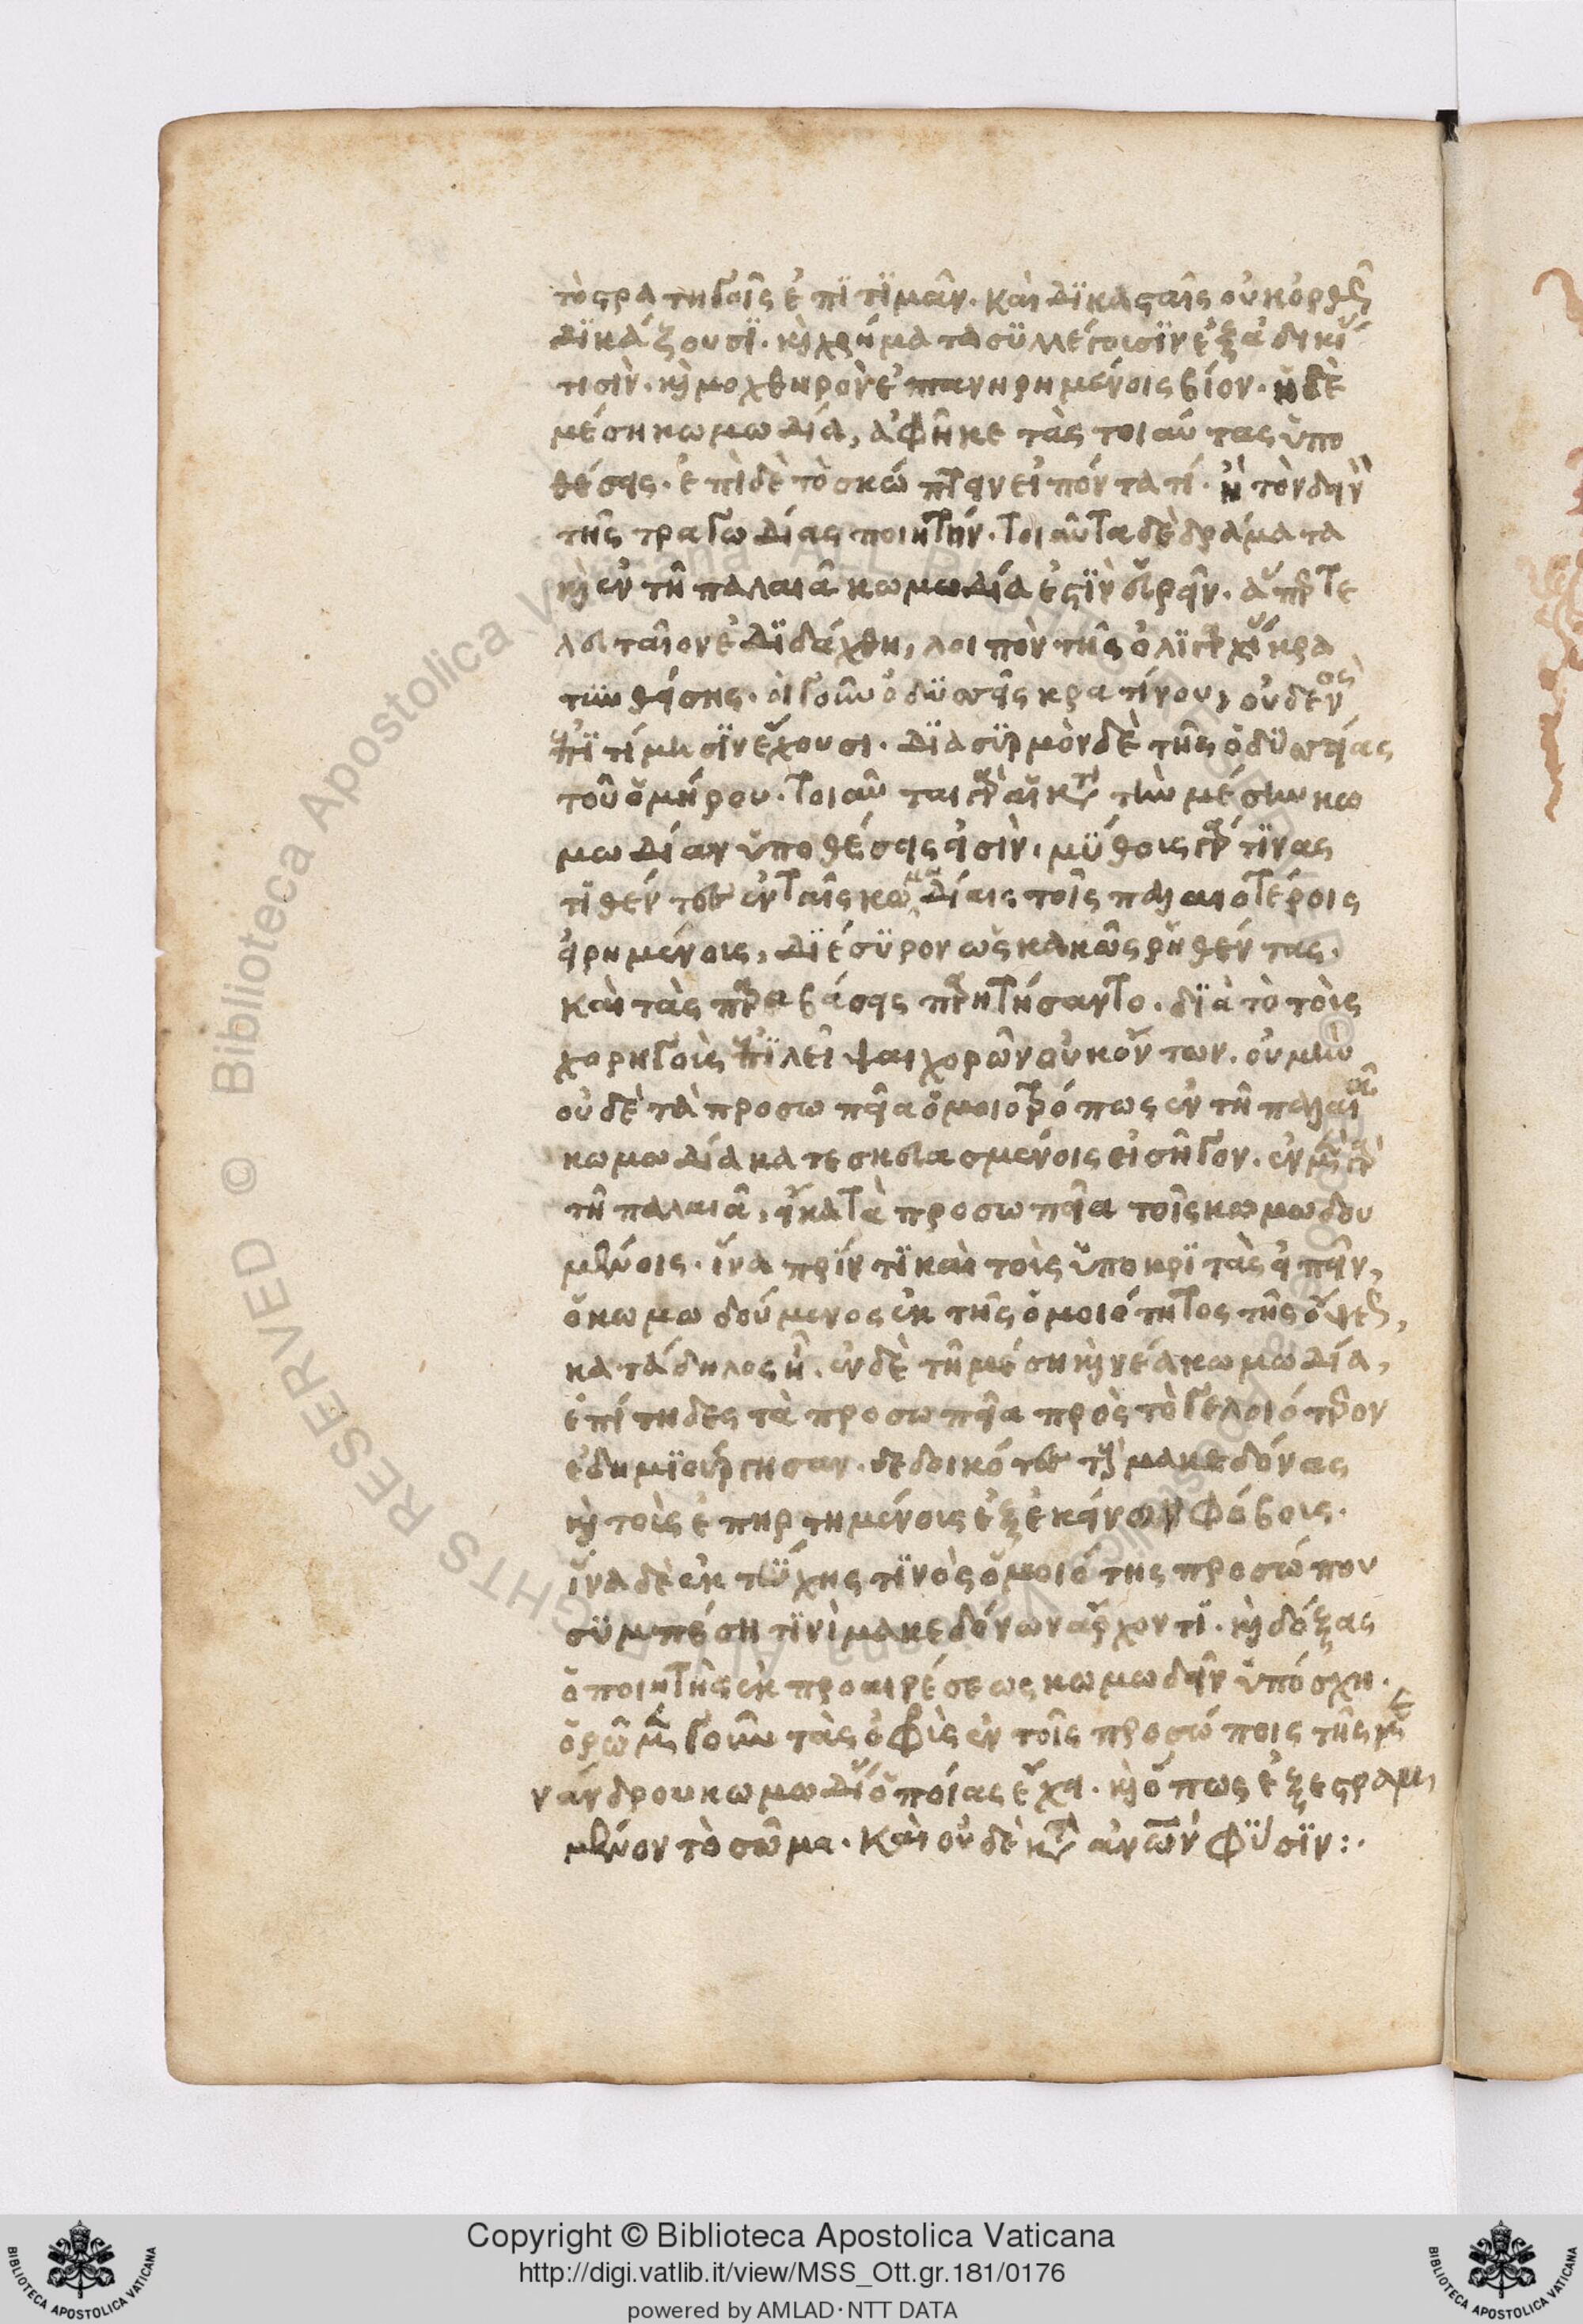 τὸ στρατηγοῖς ἐπϊτϊμᾶν. καὶ δϊκασταῖς οὐκ ὀρθῶς
δϊκάζουσϊ. καὶ χρήματα συλλέγουσϊν ἐξ ἀδικίας
τισὶν. καὶ μοχθηρὸν ἐπανηρημένοις βίον. ἡ δὲ
μέση κωμωδία, ἀφῆκε τὰς τοιαύτας ὑπο
θέσεις. ἐπὶ δὲ τὸ σκώπτειν εἰπόντα τί. ἢ τὸν δεῖν
τῆς τραγωδίας ποιητήν. τοιαῦτα δὲ δράματα
καὶ ἐν τῆ παλαιᾶ κωμωδία ἐστϊν εὑρεῖν. ἅπερ τε
λευταῖον ἐδϊδάχθη, λοιπὸν τῆς ὀλϊγαρχίας κρα
τυνθείσης. οἱ γοῦν ὀδϋσσεῖς κρατίνου, οὐδενὸς
ἐπϊτίμησϊν ἔχουσι. δϊασϋρμὸν δὲ τῆς ὀδϋσσείας
τοῦ ὁμήρου. τοιαῦται γὰρ αἱ κατὰ τὴν μέσην κω
μωδίαν ὑποθέσεις εἰσὶν. μϋθους γάρ τϊνας
τϊθέντες ἐν ταῖς κωμωδίαις τοῖς παλαιοτέροις
εἰρημένοις, δϊέσϋρον ὡς κακῶς ῥηθέντας.
καὶ τὰς παραβάσεις παρητήσαντο. δϊὰ τὸ τοὺς
χορηγοὺς ἐπϊλεῖψαι χορῶν οὐκ όντων. οὐ μὴν
οὐδὲ τὰ προσωπεῖα ὁμοιοτρόπως ἐν τῆ παλαιᾶ
κωμωδία κατεσκευασμένοις εἰσῆγον. ἐν μὲν γὰρ
τῆ παλαιᾶ, εἴκατὰ προσωπεῖα τοῖς κωμωδου
μένοις. ἵνα πρίν τϊ καὶ τοὺς ὑποκρϊτὰς εἰπεῖν,
ὁ κωμωδούμενος ἐκ τῆς ὁμοιότητος τῆς όψεως,
κατάδηλος ἦ. ἐν δὲ τῆ μέση καὶ νέα κωμωδία,
ἐπίτηδες τὰ προσωπεῖα πρὸς τὸ γελοιότερον
ἐδημϊούργησαν. δεδοικότες τοὺς μακεδόνας
καὶ τοὺς ἐπηρτημένους ἐξ ἐκείνων φόβους.
ἵνα δὲ ἐκ τϋχης τϊνὸς ὁμοιότης προσώπου
σϋμπέση τϊνὶ μακεδόνων ἄρχοντϊ. καὶ δόξας
ὁ ποιητὴς ἐκ προαιρέσεως κωμωδεῖν ὑπόσχη.
ὁρῶμεν γοῦν τὰς ὀφρὺς ἐν τοῖς προσώποις τῆς με
νάνδρου κωμωδίας ὁποίας ἔχει. καὶ ὅπως ἐξεστραμ
μένον τὸ σῶμα. καὶ οὐδὲ κατὰ ἀνθρώπων φϋσϊν:.
Copyright © Biblioteca Apostolica Vaticana
http://digi.vatlib.it/view/MSS_Ott.gr.181/0176
powered by AMLAD·NTT DATA